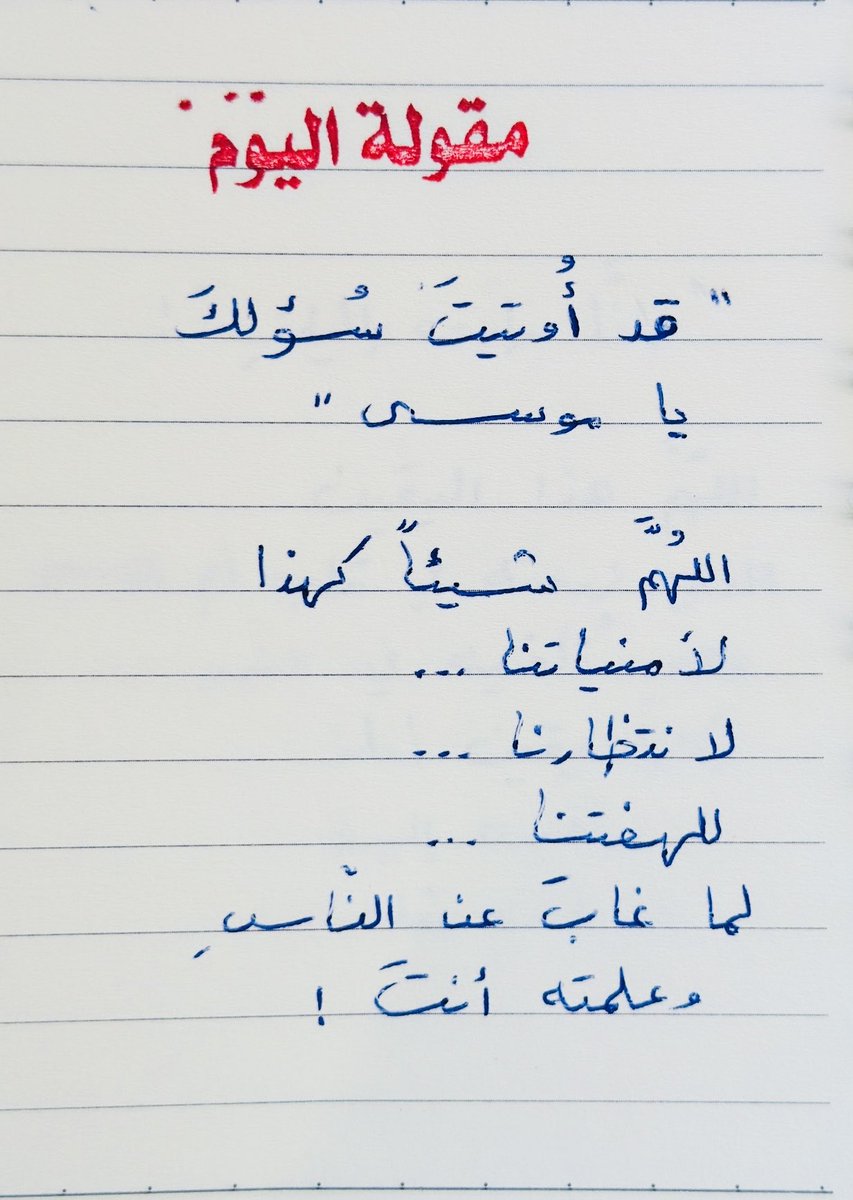 مقولة اليوم
" قد أُوتيتَ سُؤلكَ
يا موسى "
اللهُمَّ شيئاً كهذا
لأمنياتنا ...
لانتظارنا ...
للهفتنا ...
لما غابَ عن النّاسِ
وعلمته أنتَ !